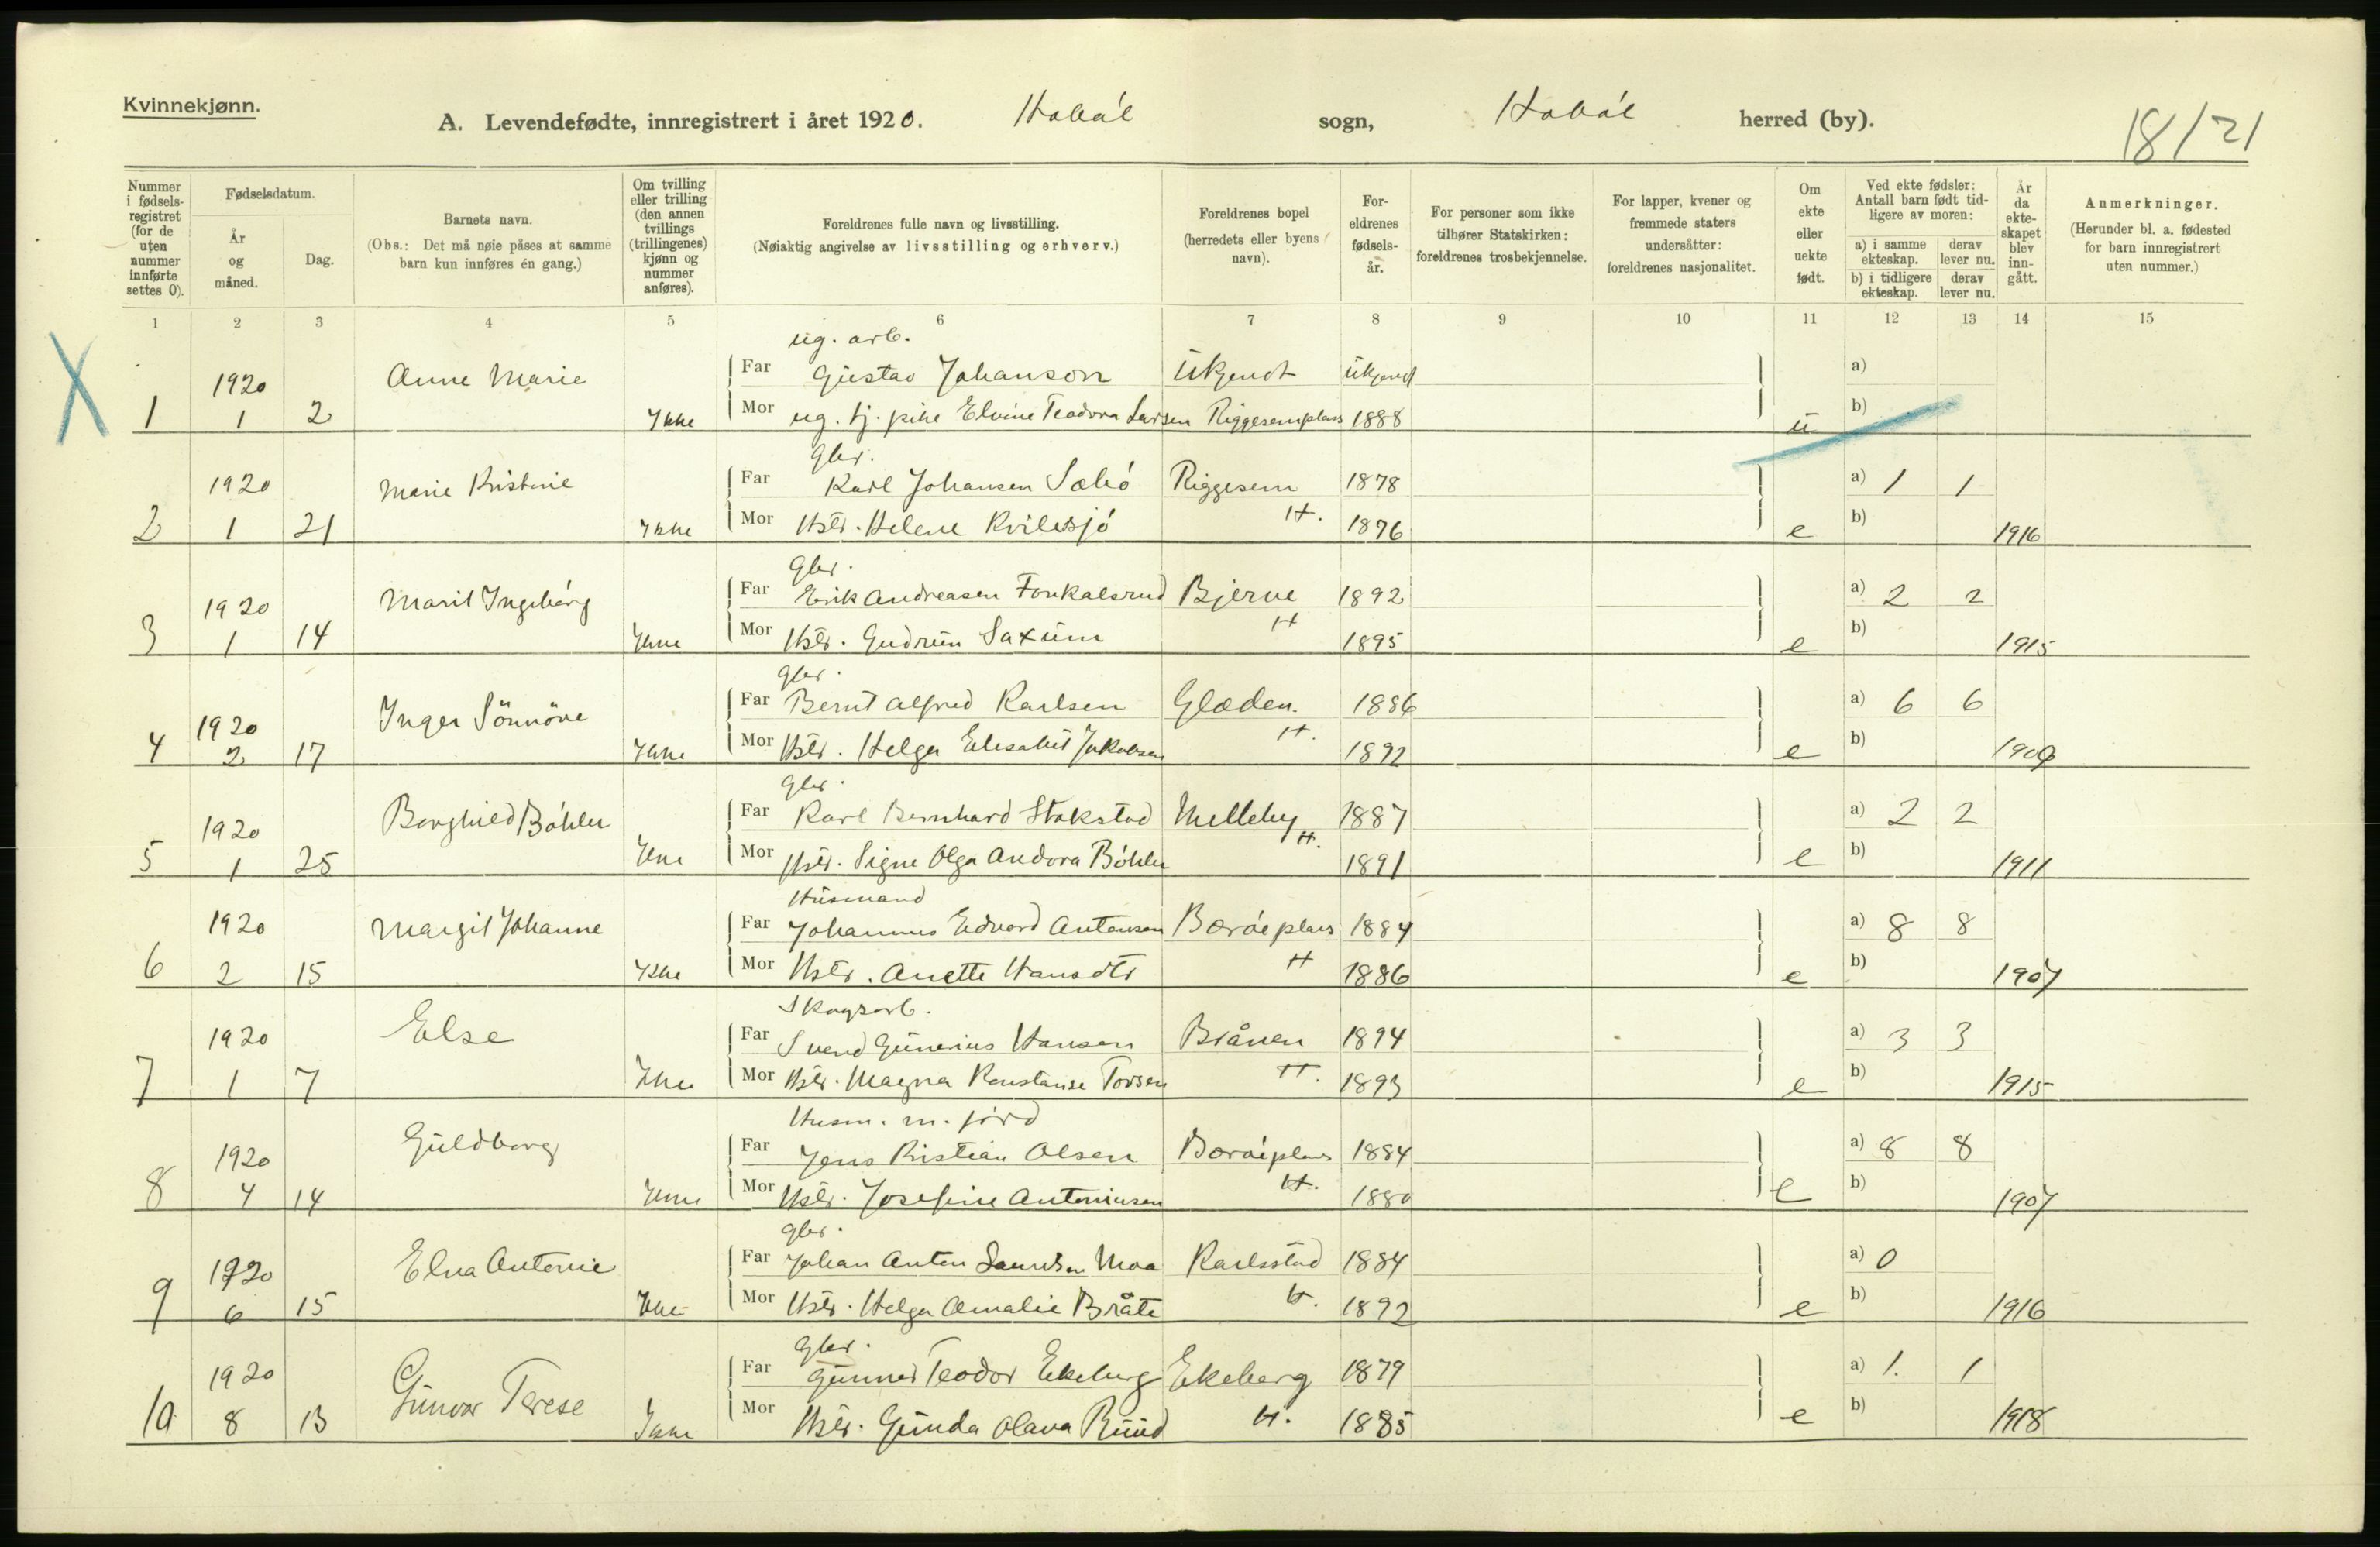 Kvinnekjønn.
A. Levendefødte, innregistrert i året 1920. Hobøl sogn, Hobøl herred (by). 18/21
Nummer i fødselsregistret (for de uten nummer innførte settes 0).
Fødselsdatum.
År og måned.
Dag.
Barnets navn.
(Obs.: Det må nøie påses at samme barn kun innføres én gang.)
Om tvilling eller trilling (den annen tvillings (trillingenes) kjønn og nummer anføres).
Foreldrenes fulle navn og livsstilling.
(Nøiaktig angivelse av livsstilling og erhverv.)
Foreldrenes bopel (herredets eller byens navn).
Foreldrenes fødselsår.
For personer som ikke tilhører Statskirken: foreldrenes trosbekjennelse.
For lapper, kvener og fremmede staters undersåtter: foreldrenes nasjonalitet.
Om ekte eller uekte født.
Ved ekte fødsler: Antall barn født tidligere av moren:
a) i samme ekteskap. derav lever nu.
b) i tidligere ekteskap. derav lever nu.
År da ekteskapet blev inngått.
Anmerkninger.
(Herunder bl. a. fødested for barn innregistrert uten nummer.)
1 2 3 4 5 6 7 8 9 10 11 12 13 14 15
ug. arb.
X 1920 Anne Marie Far Gustav Johanson Ukjendt Ukjendt a)
1 1 2 Ikke Mor ug. tj. pike Elvine Teodora Larsen Riggesemplass 1888 u b)
Gbr.
1920 Marie Kristine Far Karl Johansen Sæbö Riggesem 1878 a) 1 1
2 1 21 Ikke Mor Hstr. Helene Kvilesjö H. 1876 e b) 1916
Gbr.
1920 Marit Ingebórg Far Erik Andreasen Fonkalsrud Bjerve 1892 a) 2 2
3 1 14 Ikke Mor Hstr. Gudrun Saxum H 1895 e b) 1915
Gbr.
1920 Inger Sönnöve Far Bernt Alfred Karlsen Glæden. 1886 a) 6 6
4 2 17 Ikke Mor Hstr. Helga Elisabet Jakobsen H. 1892 e b) 1909
Gbr.
1920 Borghild Böhler Far Karl Bernhard Stokstad Melleby 1887 a) 2 2
5 1 25 Ikke Mor Hstr. Signe Olga Andora Böhler H. 1891 e b) 1911
Husmand
1920 Margit Johanne Far Johannes Edvard Antonsen Borøeplass 1884 a) 8 8
6 2 15 Ikke Mor Hstr. Anette Hansdtr H 1886 e b) 1907
Skogsarb.
1920 Else Far Svend Gunerius Hansen Brånen 1894 a) 3 3
7 1 7 Ikke Mor Hstr. Magna Konstanse Torsen H. 1893 e b) 1915
Husm. m. jord
1920 Guldborg Far Jens Kristian Olsen Borøeplass 1884 a) 8 8
8 4 14 Ikke Mor Hstr. Josefine Antoniusen H. 1880 e b) 1907
Gbr.
1920 Elna Antonie Far Johan Anton Lauritsen Moa Karlsstad 1884 a) 0
9 6 15 Ikke Mor Hstr. Helga Amalie Bråte H. 1892 e b) 1916
Gbr.
1920 Gunvor Terese Far Gunner Teodor Ekeberg Ekeberg 1879 a) 1. 1
10 8 13 Ikke Mor Hstr. Gunda Olava Ruud H. 1885 e b) 1918